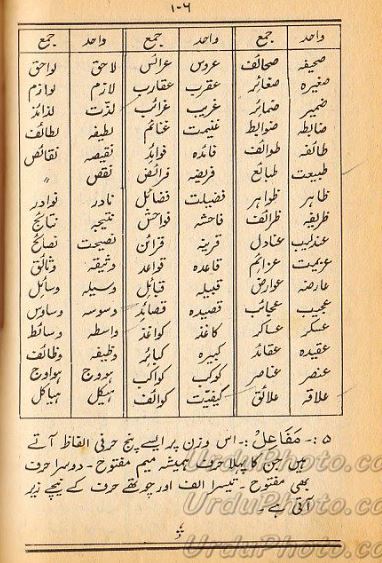 ۱۰۶
واحد جمع واحد جمع واحد جمع
صحیفہ صحائف عروس عرائس لاحق لواحق
صغیرہ صغائر عقرب عقارب لازم لوازم
ضمیر ضمائر غریب غرائب لذّت لذائذ
ضابطہ ضوابط غنیمت غنائم لطیفہ لطائف
طائفہ طوائف فائدہ فوائد نقیصہ نقائص
طبیعت طبائع فریضہ فرائض نقص "
ظاہر ظواہر فضیلت فضائل نادر نوادر
ظریفہ ظرائف فاحشہ فواحش نتیجہ نتائج
عندلیب عنادل قرینہ قرائن نصیحت نصائح
عزیمت عزائم قاعدہ قواعد وثیقہ وثائق
عارضہ عوارض قبیلہ قبائل وسیلہ وسائل
عجیب عجائب قصیدہ قصائد وسوسہ وساوس
عسکر عساکر کاغذ کواغذ واسطہ وسائط
عقیدہ عقائد کبیرہ کبائر وظیفہ وظائف
عنصر عناصر کوکب کواکب ہودج ہوادج
علاقہ علائق کیفیّت کوائف ہیکل ہیاکل
۵ :۔ مَفَاعِلُ :۔ اس وزن پر ایسے پنج حرفی الفاظ آتے
ہیں جن کا پہلا حرف ہمیشہ میم مفتوح ۔ دوسرا حرف
بھی مفتوح ۔ تیسرا الف اور چوتھے حرف کے نیچے زیر
آتی ہے ۔
UrduPhoto.com
UrduPhoto.com
UrduPhoto.com